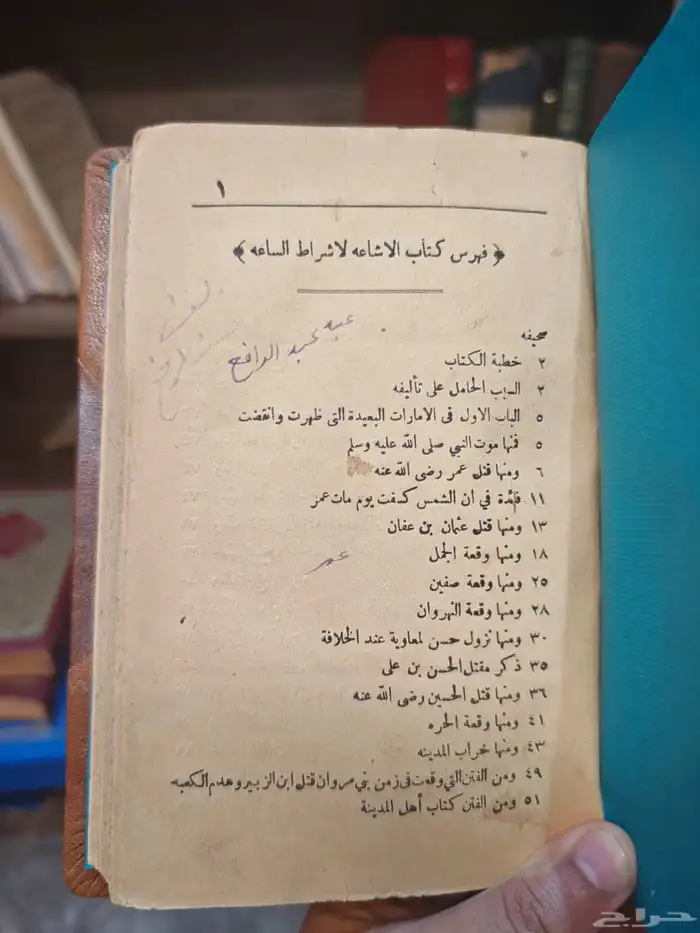 ١
﴿ فهرس كتاب الاشاعه لاشراط الساعه ﴾
صحيفه
٢ خطبة الكتاب
٢ السبب الحامل على تأليفه
٥ الباب الاول فى الامارات البعيدة التى ظهرت وانقضت
٥ فمنها موت النبي صلى الله عليه وسلم
٦ ومنها قتل عمر رضى الله عنه
١١ فائدة في ان الشمس كسفت يوم مات عمر
١٣ ومنها قتل عثمان بن عفان
١٨ ومنها وقعة الجمل
٢٥ ومنها وقعة صفين
٢٨ ومنها وقعة النهروان
٣٠ ومنها نزول حسن لمعاوية عند الخلافة
٣٥ ذكر مقتل الحسن بن على
٣٦ ومنها قتل الحسين رضى الله عنه
٤١ ومنها وقعة الحره
٤٣ ومنها خراب المدينه
٤٩ ومن الفتن التي وقعت فى زمن بني مروان قتل ابن الزبير وهدم الكعبه
٥١ ومن الفتن كتاب أهل المدينة
حراج